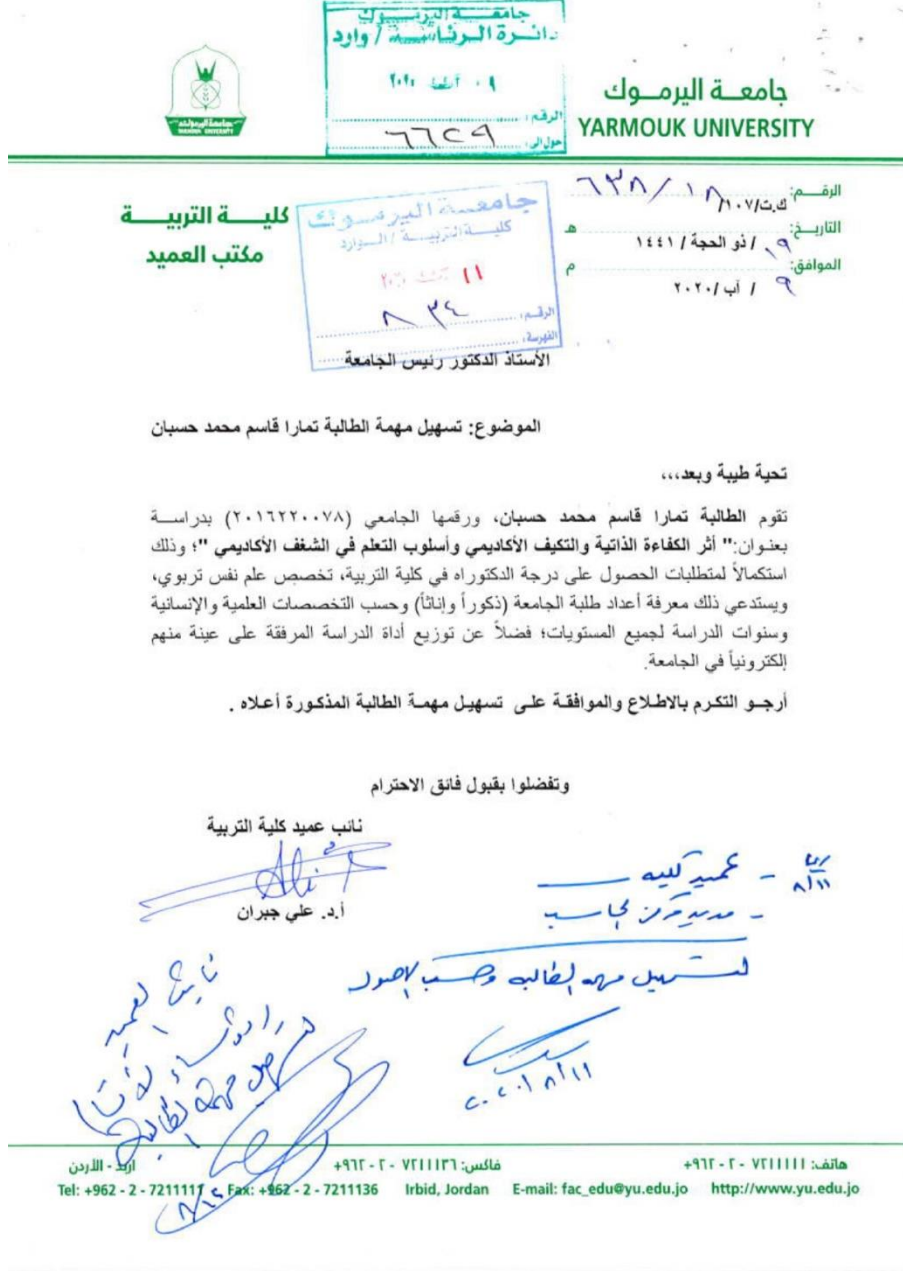 جامعـة اليرمـوك
دائـرة الرئاسـة / وارد
٠٩ آب ٢٠٢٠
الرقم:
٦٦٢٩
حول الى:
جامعــة اليرمــوك
YARMOUK UNIVERSITY
جامعة اليرموك
YARMOUK UNIVERSITY
الرقــم: ك.ت/١٠٧/١٨/٦٣٨
التاريــخ: ١٩ / ذو الحجة / ١٤٤١ هـ
الموافق: ٩ / آب /٢٠٢٠ م
كليـــة التربيـــة
مكتب العميد
جامعـــة اليرمـــوك
كليـــة التربيـــة / الـــوارد
١١
الرقـم:
٨٣٤
الفهرسة:
الأستاذ الدكتور رئيس الجامعة
الموضوع: تسهيل مهمة الطالبة تمارا قاسم محمد حسبان
تحية طيبة وبعد،،،
تقوم الطالبة تمارا قاسم محمد حسبان، ورقمها الجامعي (٢٠١٦٢٢٠٠٧٨) بدراســة
بعنـوان:" أثر الكفاءة الذاتية والتكيف الأكاديمي وأسلوب التعلم في الشغف الأكاديمي "؛ وذلك
استكمالاً لمتطلبات الحصول على درجة الدكتوراه في كلية التربية، تخصص علم نفس تربوي،
ويستدعي ذلك معرفة أعداد طلبة الجامعة (ذكوراً وإناثاً) وحسب التخصصات العلمية والإنسانية
وسنوات الدراسة لجميع المستويات؛ فضلاً عن توزيع أداة الدراسة المرفقة على عينة منهم
إلكترونياً في الجامعة.
أرجـو التكـرم بالاطـلاع والموافقـة علـى تسهيـل مهمـة الطالبة المذكـورة أعـلاه .
وتفضلوا بقبول فائق الاحترام
نائب عميد كلية التربية
أ.د. علي جبران
٨/١١
- عميد كلية
- مدير مركز الحاسب
لتسهيل مهمة الطالبة وحسب الاصول
٢٠٢٠/٨/١١
نائب العميد
مهمة الطالبة
٨/١٢
هاتف: ٧٢١١١١١ - ٢ - ٩٦٢+
فاكس: ٧٢١١١٣٦ - ٢ - ٩٦٢+
اربد - الأردن
Tel: +962 - 2 - 7211111 Fax: +962 - 2 - 7211136 Irbid, Jordan E-mail: fac_edu@yu.edu.jo http://www.yu.edu.jo